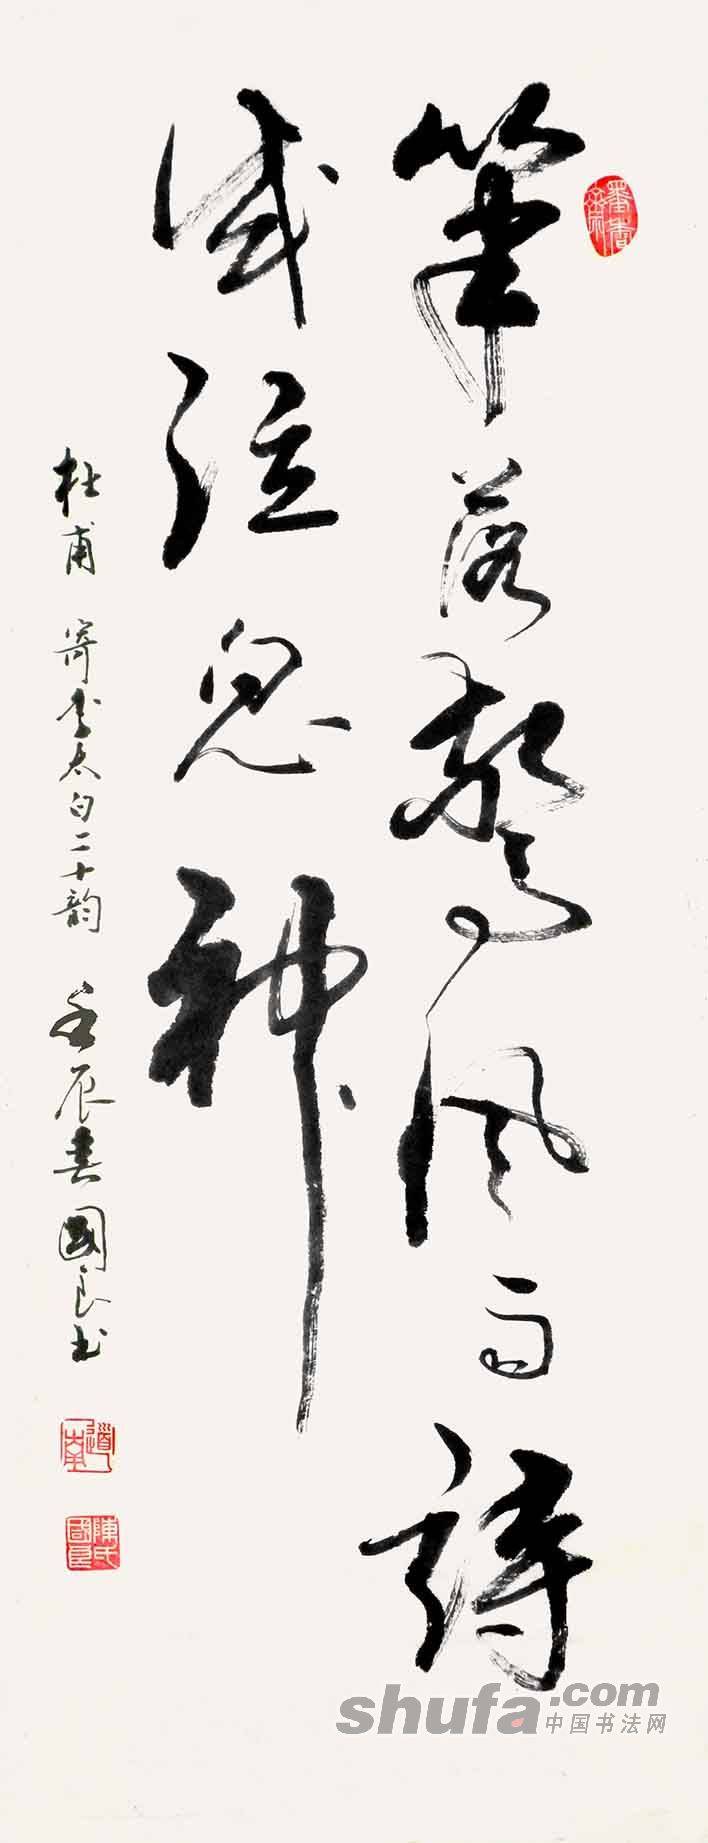 筆落驚風雨詩
成泣鬼神
杜甫 寄李太白二十韵 壬辰春國良书
陳氏國良
shufa.com
中国书法网